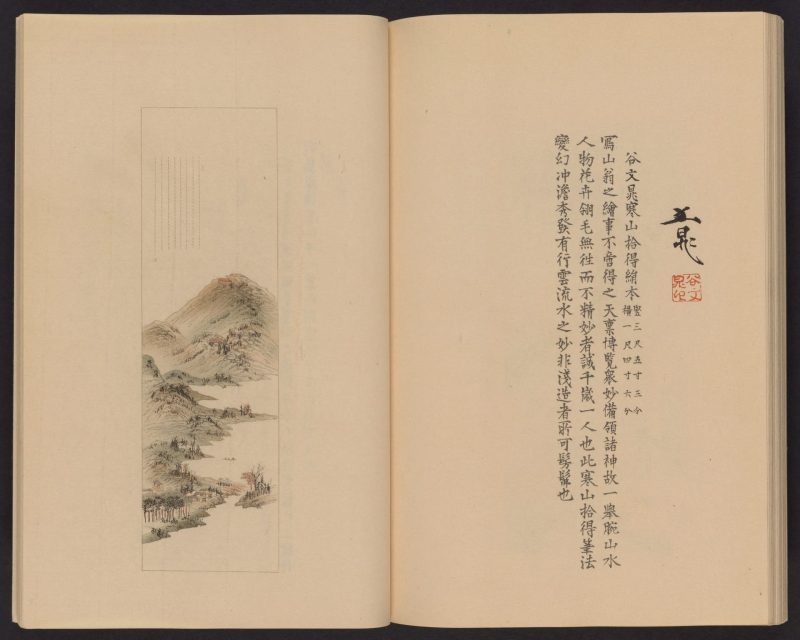 文晁
谷文晁印
谷文晁寒山拾得絹本 竪三尺五寸三分 横一尺四寸六分
寫山翁之繪事不啻得之天稟博覧衆妙備領諸神故一擧腕山水
人物花卉翎毛無往而不精妙者誠千歳一人也此寒山拾得筆法
變幻冲澹秀發有行雲流水之妙非淺造者所可髣髴也